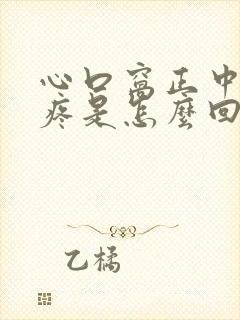 心口窩正中
疼是怎麼回
乙橘